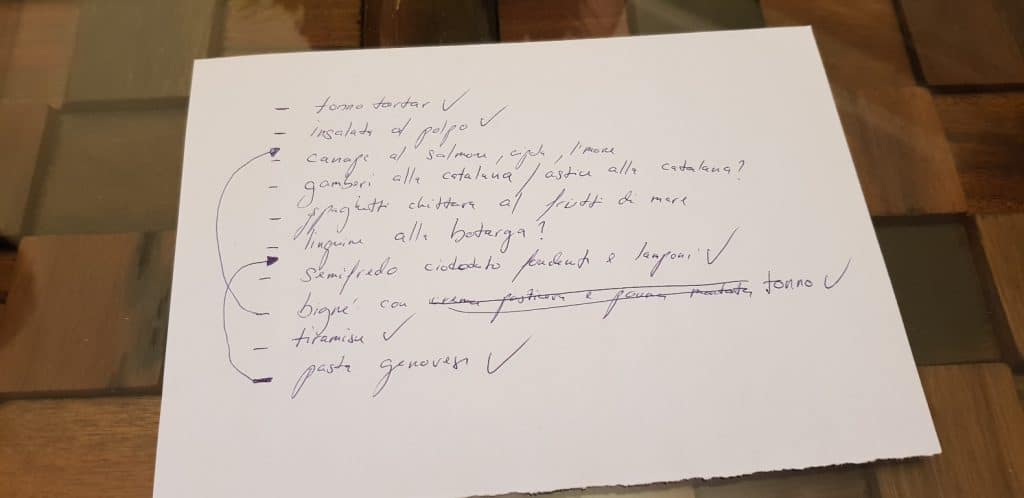 - tonno tartar ✓
- insalata al polpo ✓
- canape al salmone, cipola, limone
- gamberi alla catalana / astice alla catalana?
- spaghetti chittara al frutti di mare
- linguine alla botarga?
- semifredo ciocolato fondente e lamponi ✓
- bigné con crema pasticera e panna montata tonno ✓
- tiramisu ✓
- pasta genovese ✓